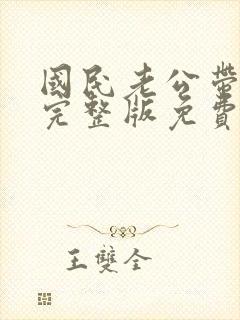 國民老公帶
完整版免費
王雙全